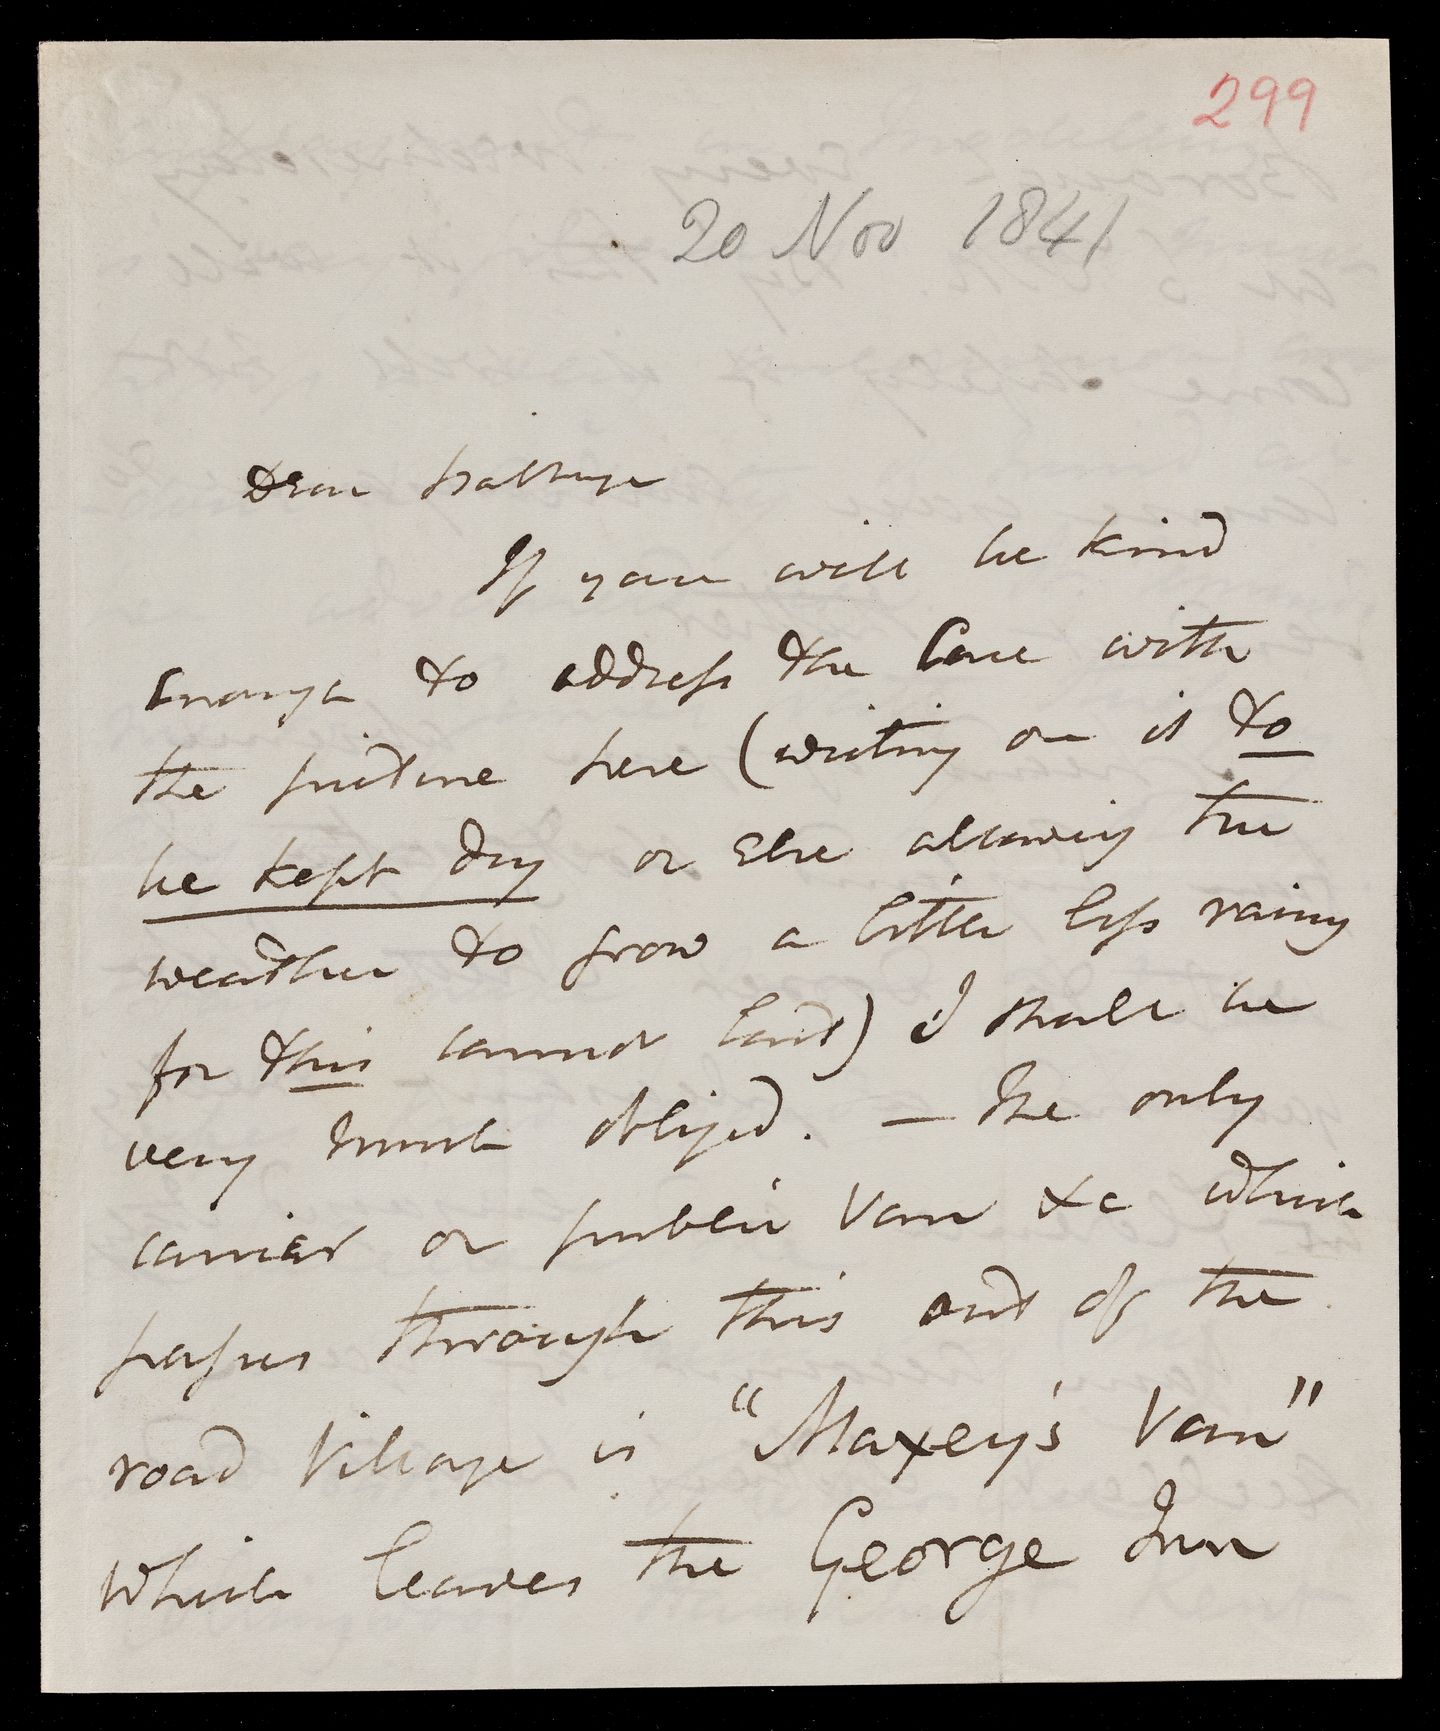 299
20 Nov 1841
Dear Palsnye
If you will be kind
enough to address the Case with
the picture here (writing on it to
be kept dry or else allowing the
weather to grow a little less rainy
for this cannot last) I shall be
very much obliged. — The only
carrier or public Van &c which
passes through this out of the
road Village is "Maxey's Van"
which leaves the George Inn